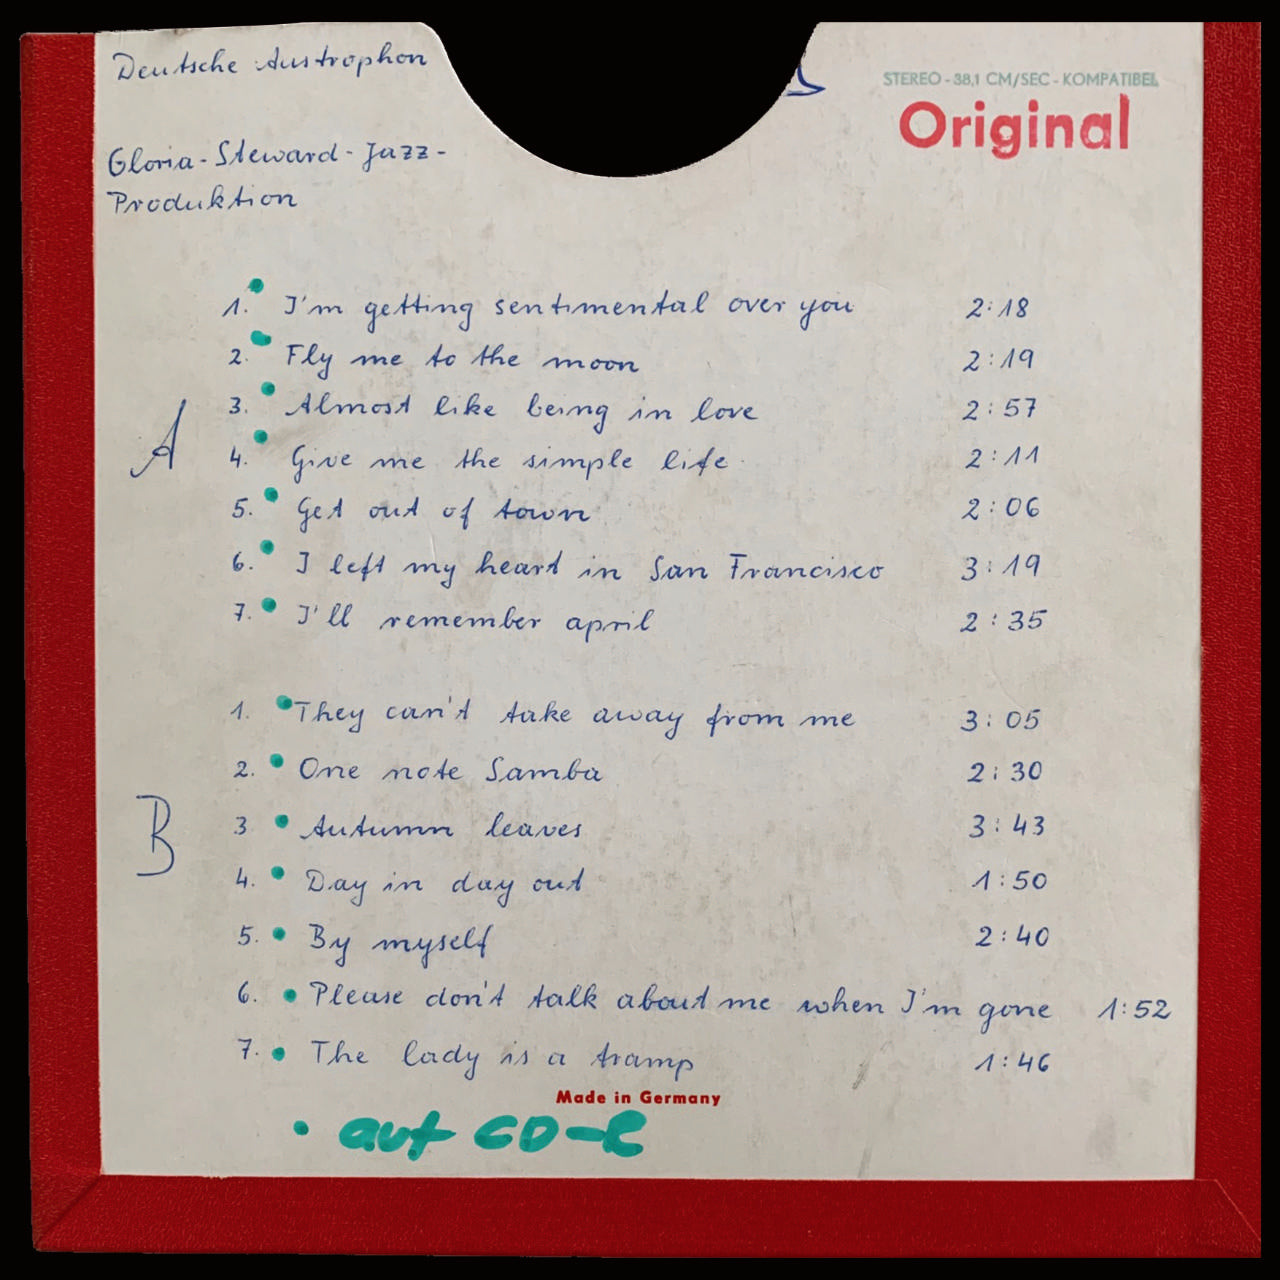 Deutsche Austrophon
STEREO - 38,1 CM/SEC - KOMPATIBEL
Original
Gloria-Steward-Jazz-
Produktion
A
1. I'm getting sentimental over you 2:18
2. Fly me to the moon 2:19
3. Almost like being in love 2:57
4. Give me the simple life 2:11
5. Get out of town 2:06
6. I left my heart in San Francisco 3:19
7. I'll remember april 2:35
B
1. They can't take away from me 3:05
2. One note Samba 2:30
3 Autumn leaves 3:43
4. Day in day out 1:50
5. By myself 2:40
6. Please don't talk about me when I'm gone 1:52
7. The lady is a tramp 1:46
Made in Germany
• auf CD-R